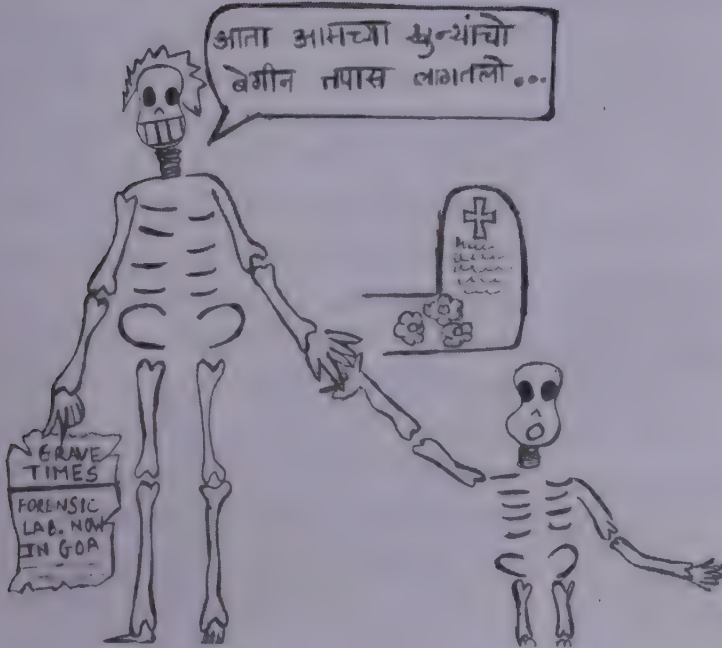 आता आमच्या खुन्यांचो
बेगीन तपास लागतलो...
GRAVE
TIMES
FORENSIC
LAB. NOW
IN GOA